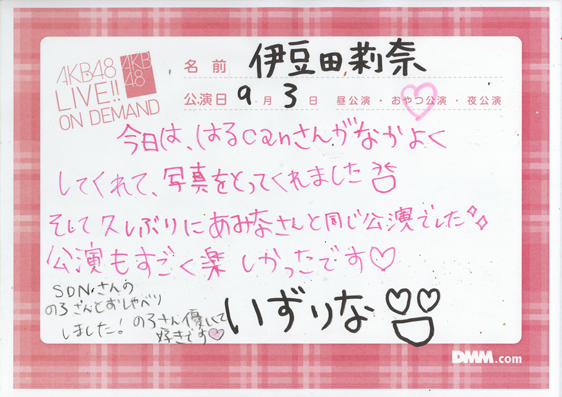 AKB48
LIVE!!
ON DEMAND
AKB
48
名前 伊豆田莉奈
公演日 9月3日 昼公演・おやつ公演・夜公演
今日は、はるcanさんがなかよく
してくれて、写真をとってくれました
そして久しぶりにあみなさんと同じ公演でした
公演もすごく楽しかったです♡
SDN.さんの
のろさんとおしゃべり
しました! のろさん優しくて
好きです♡
いずりな
DMM.com